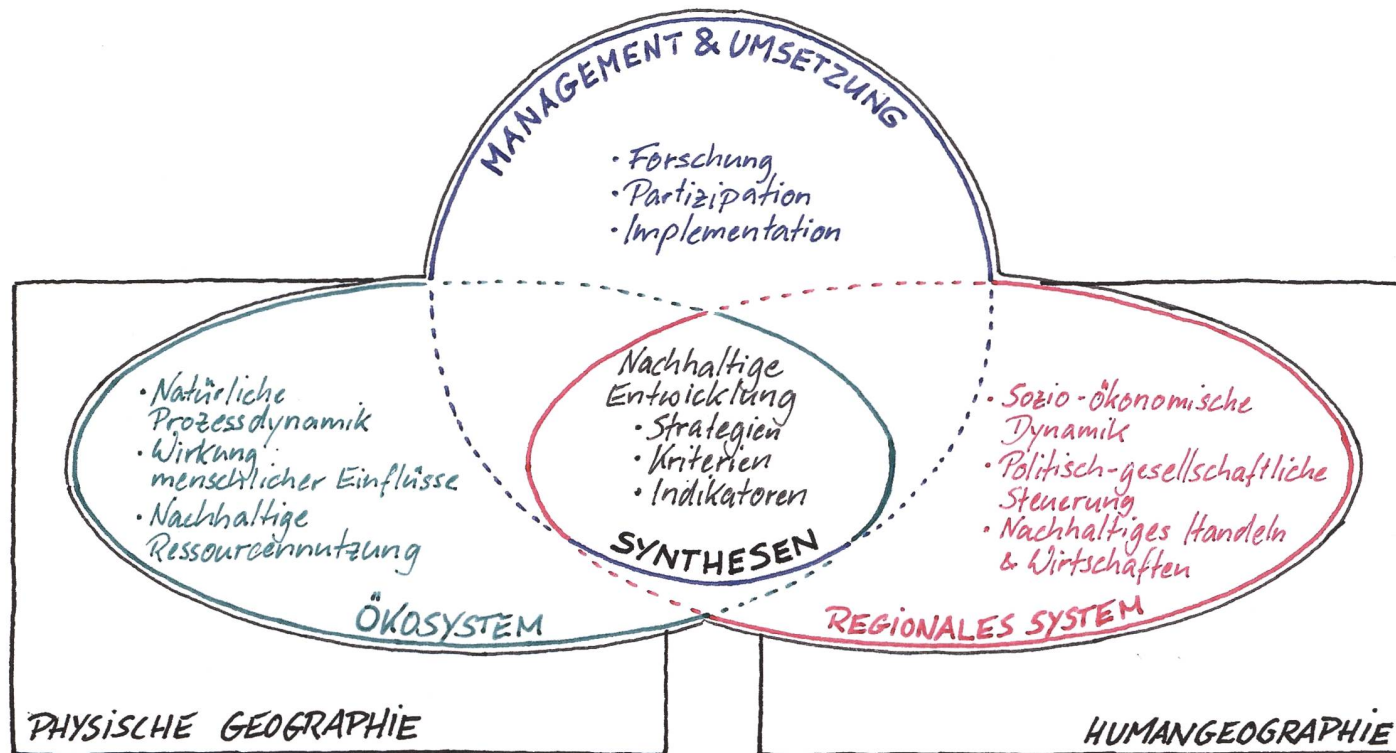 MANAGEMENT & UMSETZUNG
• Forschung
• Partizipation
• Implementation
• Natürliche
Prozessdynamik
• Wirkung
menschlicher Einflüsse
• Nachhaltige
Ressourcennutzung
ÖKOSYSTEM
Nachhaltige
Entwicklung
• Strategien
• Kriterien
• Indikatoren
SYNTHESEN
• Sozio-ökonomische
Dynamik
• Politisch-gesellschaftliche
Steuerung
• Nachhaltiges Handeln
& Wirtschaften
REGIONALES SYSTEM
PHYSISCHE GEOGRAPHIE
HUMANGEOGRAPHIE